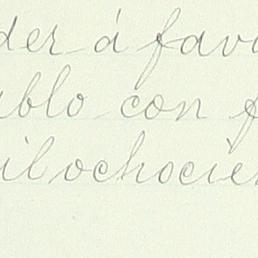 der á favo
ablo con f
ilochocien